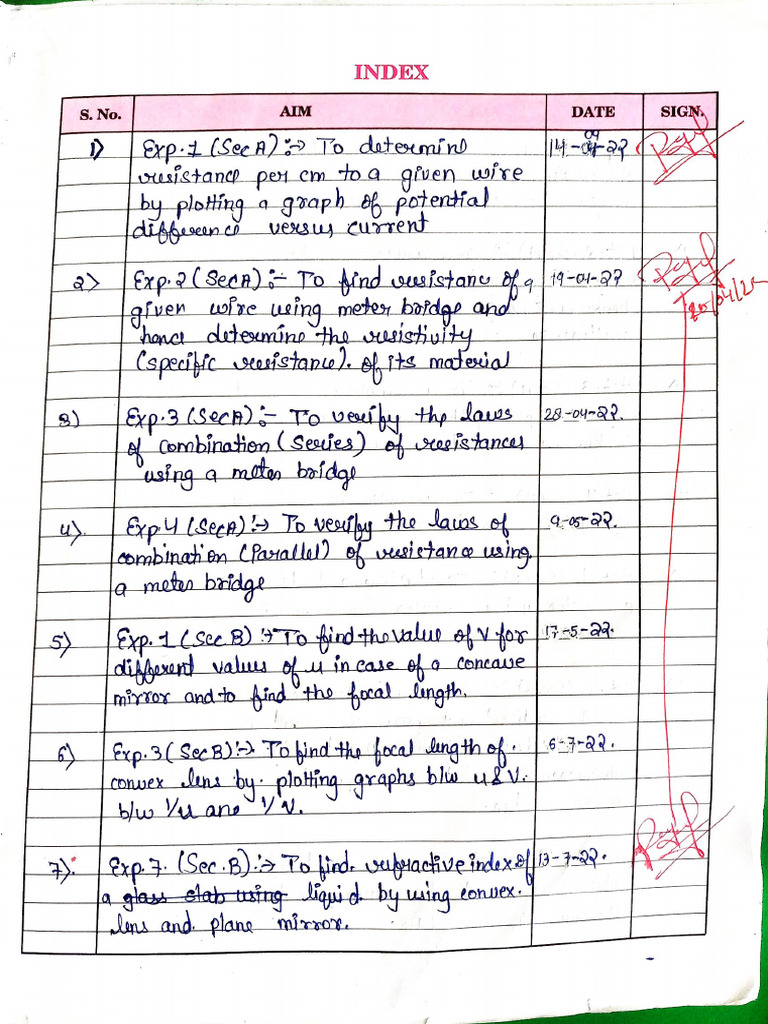 INDEX
S. No. AIM DATE SIGN.
1) Exp.1 (Sec A) :→ To determine 14-04-22
resistance per cm to a given wire
by plotting a graph of potential
difference versus current
2) Exp.2 (Sec A) :- To find resistanc of a 19-04-22
given wire using meter bridge and
hence determine the resistivity
(specific resistance). of its material
3) Exp.3 (Sec A) :- To verify the laws 28-04-22.
of combination (Series) of resistances
using a meter bridge
4). Exp.4 (Sec A) :→ To verify the laws of 9-05-22.
combination (Parallel) of resistance using
a meter bridge
5) Exp.1 (Sec B) :→ To find the value of v for 17-5-22.
different values of u in case of a concave
mirror and to find the focal length.
6) Exp.3 (Sec B) :→ To find the focal length of. 6-7-22.
convex lens by. plotting graphs b/w u & v.
b/w 1/u and 1/v.
7). Exp.7. (Sec.B) :→ To find. refractive index of 13-7-22.
a glass slab using liquid. by using convex.
lens and plane mirror.